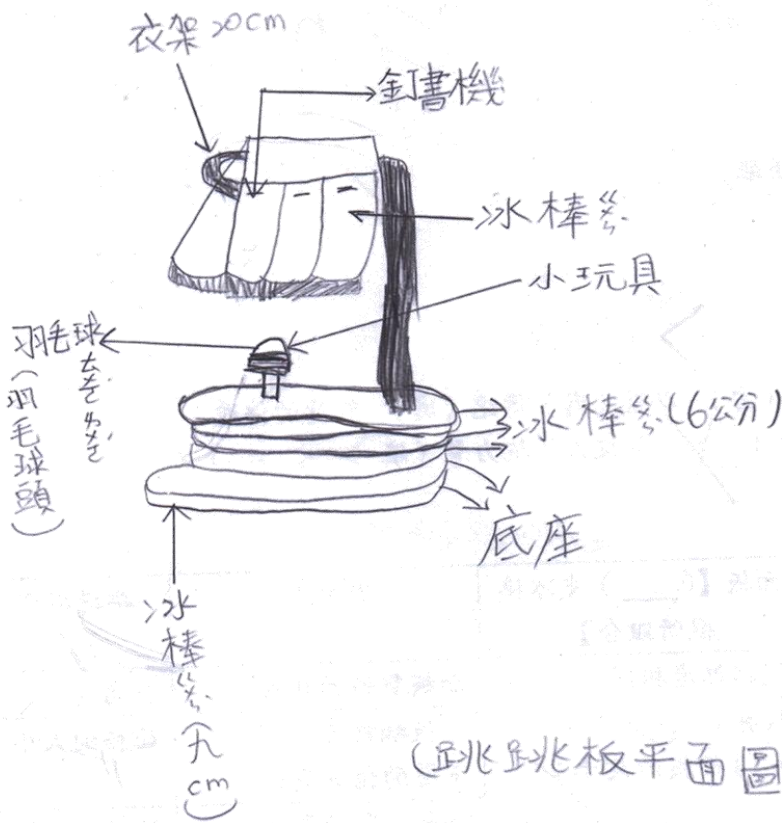 衣架20cm
釘書機
冰棒ㄍㄨㄣˋ
小玩具
羽毛球ㄊㄡˊㄉㄡˊ
(羽毛球頭)
冰棒ㄍㄨㄣˋ(6公分)
底座
冰棒ㄍㄨㄣˋ(九cm)
(跳跳板平面圖